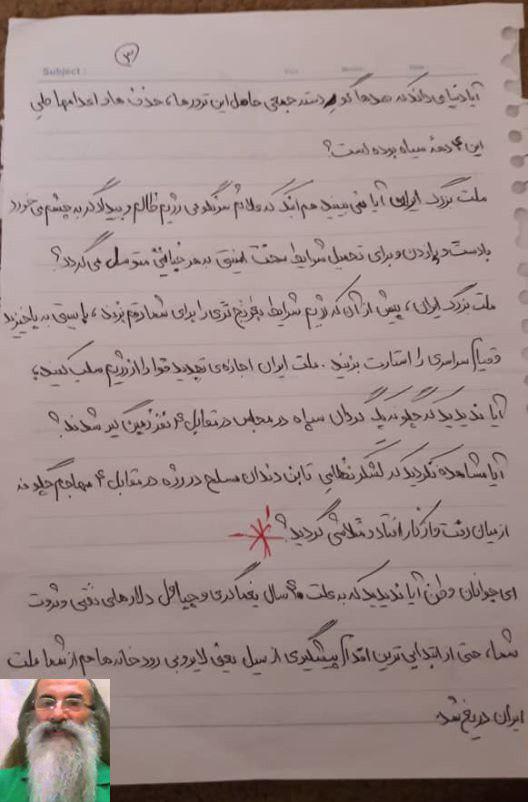 ۳
Subject :
Date :
آیا دنیا می‌داند که صدها گور دسته جمعی حاصل این ترورها، حذف ها و اعدامها طی
این ۴ دهۀ سیاه بوده است؟
ملت بزرگ ایران آیا نمی بینید هم اینک که علائم سرنگونی رژیم ظالم و بیدادگر به چشم می خورد
با دست و پا زدن و برای تحمیل شرایط سخت امنیتی به هر خیانتی متوسل می گردد؟
ملت بزرگ ایران، پیش از آن که رژیم شرایط بغرنج تری را برای شما رقم بزند، بایستی به پاخیزید
و قیام سراسری را استارت بزنید. ملت ایران اجازه‌ی تجدید قوا را از رژیم سلب کنید،
آیا ندیدید که چگونه یک گردان سپاه در مجلس در مقابل ۴ نفر زمین گیر شدند؟
آیا مشاهده نکردید که لشکر نظامی تا بن دندان مسلح در رژه در مقابل ۴ مهاجم چگونه
از میان رفت و از کار افتاد و متلاشی گردید؟
ای جوانان وطن آیا ندیدید که به علت ۴۰ سال یغماگری و چپاول دلارهای نفتی و ثروت
شما، حتی از ابتدایی ترین اقدام پیشگیری از سیل یعنی لایروبی رودخانه ها هم از شما ملت
ایران دریغ شد